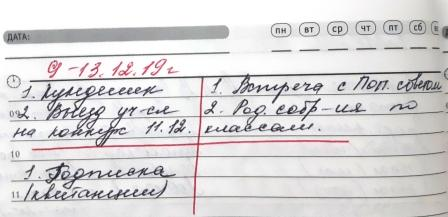 ДАТА:
ПН ВТ СР ЧТ ПТ СБ
9-13.12.19г
1. Кундешек
09 2. Выезд уч-ся
на конкурс 11.12.
1. Встреча с Поп. советом
2. Род. собр-ия по
классам.
10
1. Подписка
11 (квитанции)